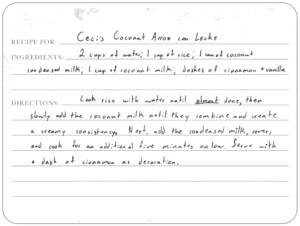 RECIPE FOR: Ceci's Coconut Arroz con Leche
INGREDIENTS: 2 cups of water; 1 cup of rice; 1 can of coconut
condensed milk; 1 cup of coconut milk; dashes of cinnamon + vanilla
DIRECTIONS: Cook rice with water until almost done, then
slowly add the coconut milk until they combine and create
a creamy consistency. Next, add the condensed milk, cover,
and cook for an additional five minutes on low. Serve with
a dash of cinnamon as decoration.